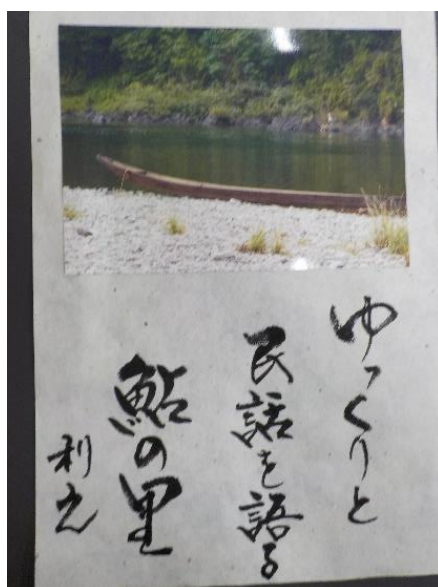 ゆっくりと
民話を語る
鮎の里